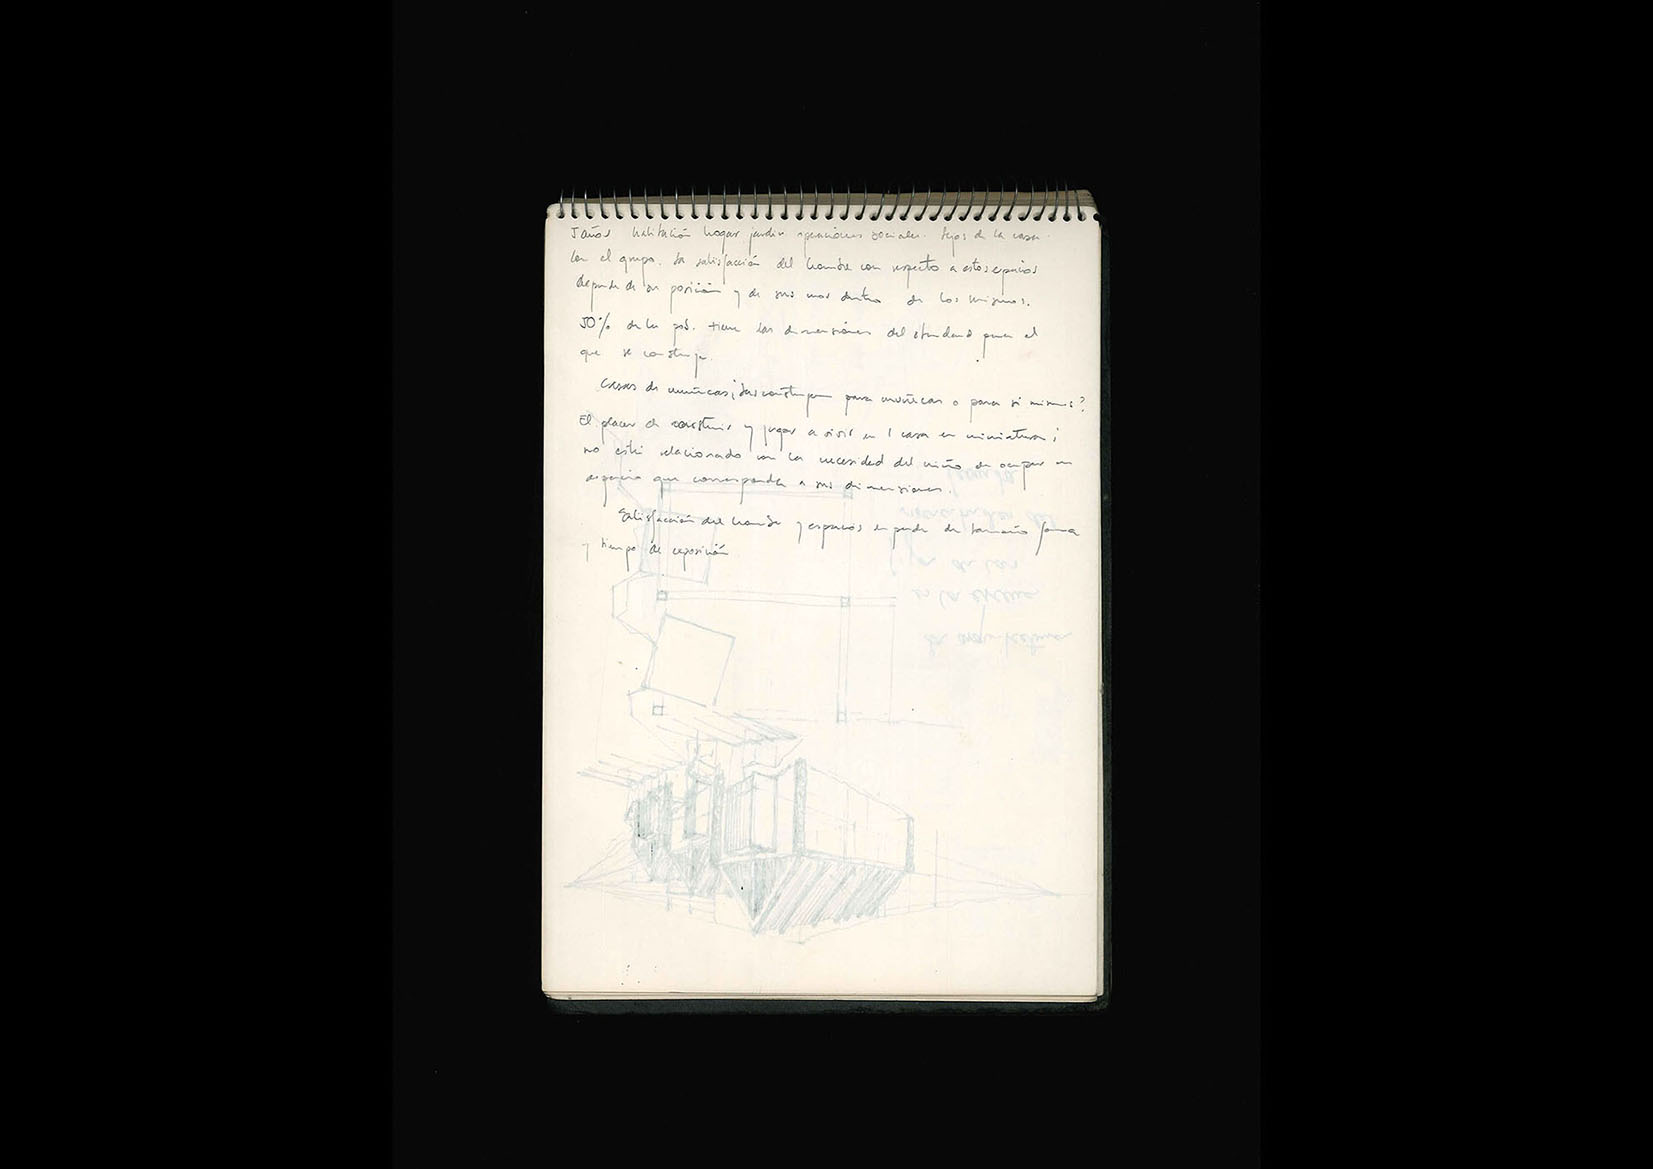 5 años habitación hogar jardín sociales. lejos de la casa.
con el grupo. La satisfacción del hombre con respecto a estos espacios
depende de su posición y de sus usos dentro de los mismos.
50% de la pob. tiene las dimensiones del standard para el
que se construye.
Casas de muñecas ¿las construyen para muñecas o para si mismos?
El placer de construir y jugar a vivir en 1 casa en miniatura ¿
no está relacionado con la necesidad del niño de ocupar un
espacio que corresponda a sus dimensiones.
Satisfacción del hombre y espacios depende de tamaño forma
y tiempo de